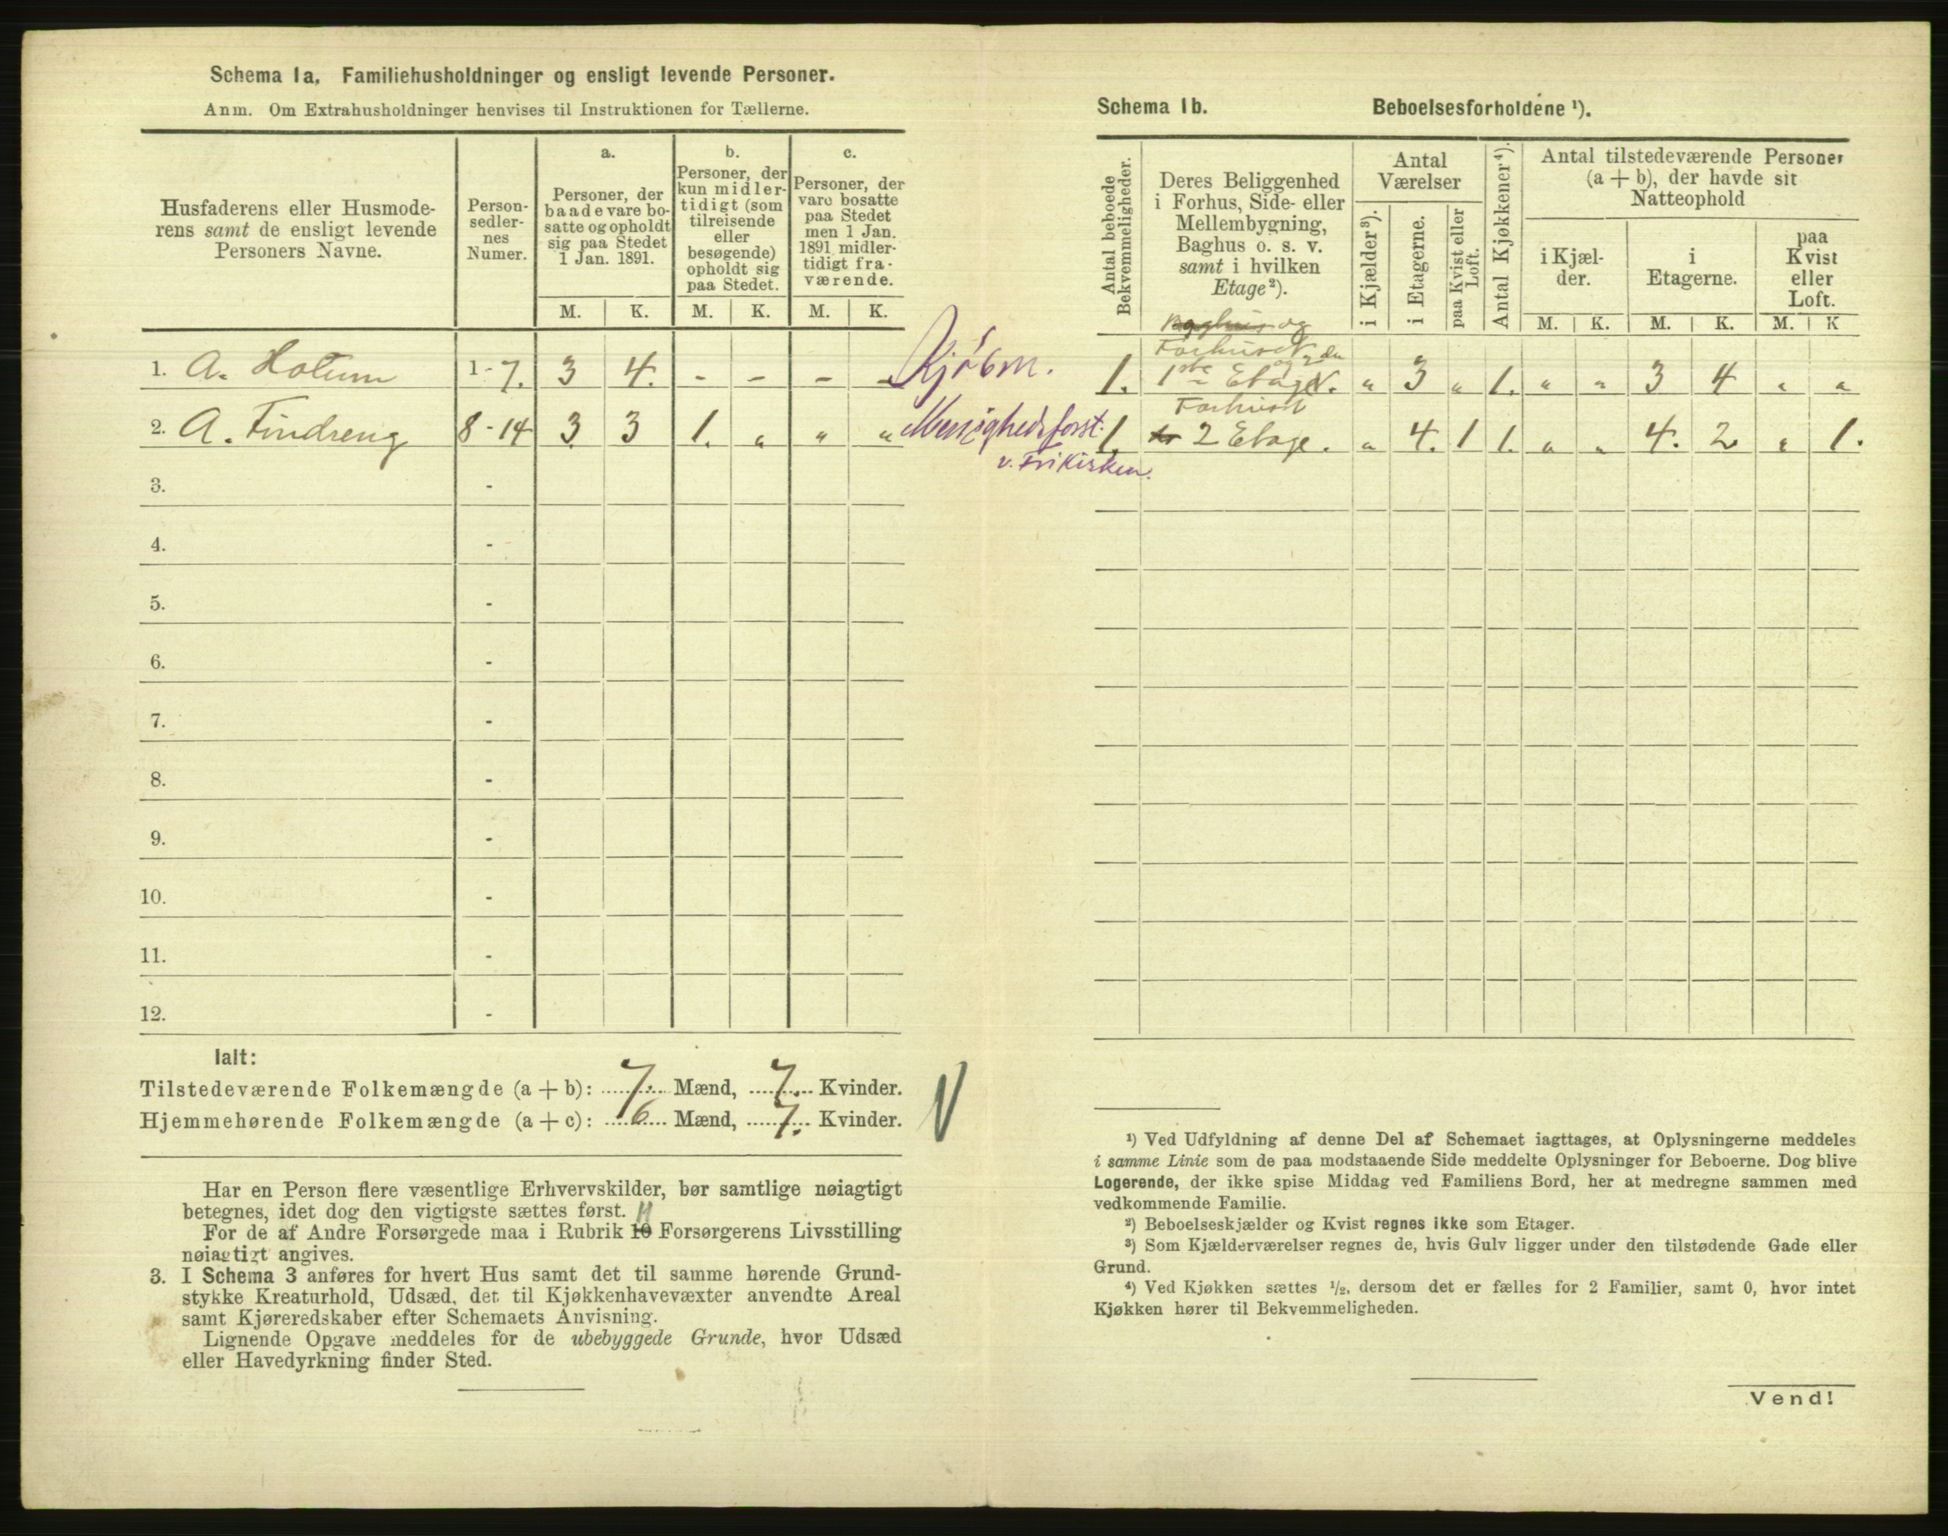 Schema 1a. Familiehusholdninger og ensligt levende Personer.
Anm. Om Extrahusholdninger henvises til Instruktionen for Tællerne.
Husfaderens eller Husmode-
rens samt de ensligt levende
Personers Navne.
Person-
sedler-
nes
Numer.
a.
Personer, der
baade vare bo-
satte og opholdt
sig paa Stedet
1 Jan. 1891.
b.
Personer, der
kun midler-
tidigt (som
tilreisende
eller
besøgende)
opholdt sig
paa Stedet.
c.
Personer, der
vare bosatte
paa Stedet
men 1 Jan.
1891 midler-
tidigt fra-
værende.
M. K. M. K. M. K.
1. A. Hotum 1-7. 3 4. - - - - Kjöbm.
2. A. Findreng 8-14 3 3 1. " " " Menighedsforst.
v. Frikirken.
3. -
4. -
5. -
6. -
7. -
8. -
9. -
10. -
11. -
12. -
Ialt:
Tilstedeværende Folkemængde (a + b): 7. Mænd, 7. Kvinder.
Hjemmehørende Folkemængde (a + c): 6 Mænd, 7. Kvinder.
Har en Person flere væsentlige Erhvervskilder, bør samtlige nøiagtigt
betegnes, idet dog den vigtigste sættes først.
11
For de af Andre Forsørgede maa i Rubrik 10 Forsørgerens Livsstilling
nøiagtigt angives.
3. I Schema 3 anføres for hvert Hus samt det til samme hørende Grund-
stykke Kreaturhold, Udsæd, det til Kjøkkenhavevæxter anvendte Areal
samt Kjøreredskaber efter Schemaets Anvisning.
Lignende Opgave meddeles for de ubebyggede Grunde, hvor Udsæd
eller Havedyrkning finder Sted.
Schema 1b. Beboelsesforholdene ¹).
Antal beboede
Bekvemmeligheder.
Deres Beliggenhed
i Forhus, Side- eller
Mellembygning,
Baghus o. s. v.
samt i hvilken
Etage²).
Antal
Værelser
i Kjælder³).
i Etagerne.
paa Kvist eller
Loft.
Antal Kjøkkener⁴).
Antal tilstedeværende Personer
(a + b), der havde sit
Natteophold
i Kjæl-
der.
i
Etagerne.
paa
Kvist
eller
Loft.
M. K. M. K. M. K
Baghus og
Forhuset
og 2den
1. 1ste Etage. " 3 " 1. " " 3 4 " "
Forhuset
1. 2 Etage. " 4. 1 1. " " 4. 2 " 1.
¹) Ved Udfyldning af denne Del af Schemaet iagttages, at Oplysningerne meddeles
i samme Linie som de paa modstaaende Side meddelte Oplysninger for Beboerne. Dog blive
Logerende, der ikke spise Middag ved Familiens Bord, her at medregne sammen med
vedkommende Familie.
²) Beboelseskjælder og Kvist regnes ikke som Etager.
³) Som Kjælderværelser regnes de, hvis Gulv ligger under den tilstødende Gade eller
Grund.
⁴) Ved Kjøkken sættes ½, dersom det er fælles for 2 Familier, samt 0, hvor intet
Kjøkken hører til Bekvemmeligheden.
Vend!